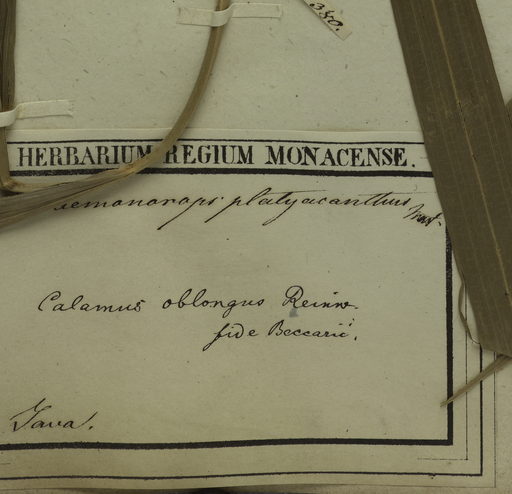 350.
HERBARIUM REGIUM MONACENSE.
aemonorops platyacanthus Mart.
Calamus oblongus Reinw.
fide Beccarii.
Java.